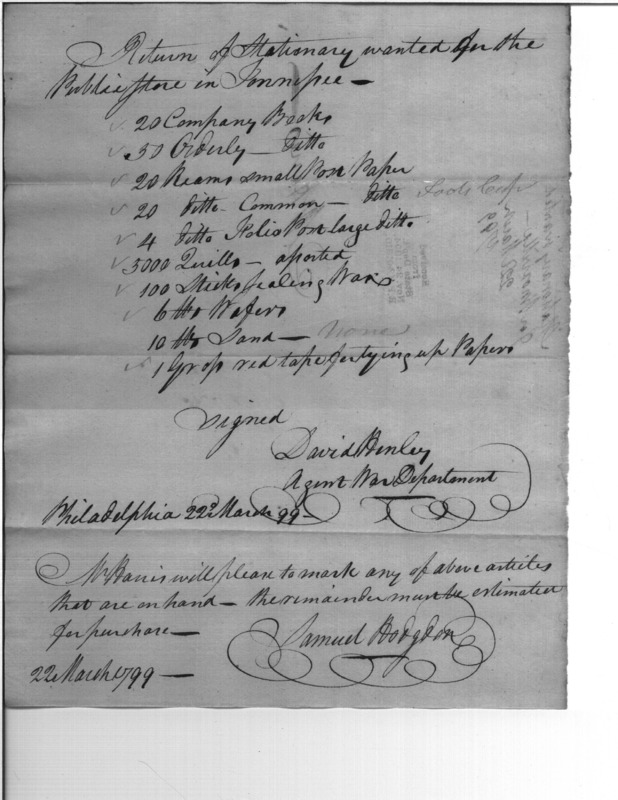 Return of Stationary wanted for the
Public Store in Tennissee —
20 Company Books
50 Orderly — ditto
20 Reams small Post Paper
20 ditto Common — ditto
Fools Cap
4 ditto Folio Post large ditto
5000 Quills — assorted
100 Sticks Sealing Wax
6 lbs Wafers
10 lbs Sand — None
1 Gross red tape for tying up Papers
Signed
David Henley
Agent War Department
Philadelphia 22d March 99 —
Mr Harris will please to mark any of above articles
that are on hand — the remainder must be estimated
for purchase —
Samuel Hodgdon
22 March 1799 —